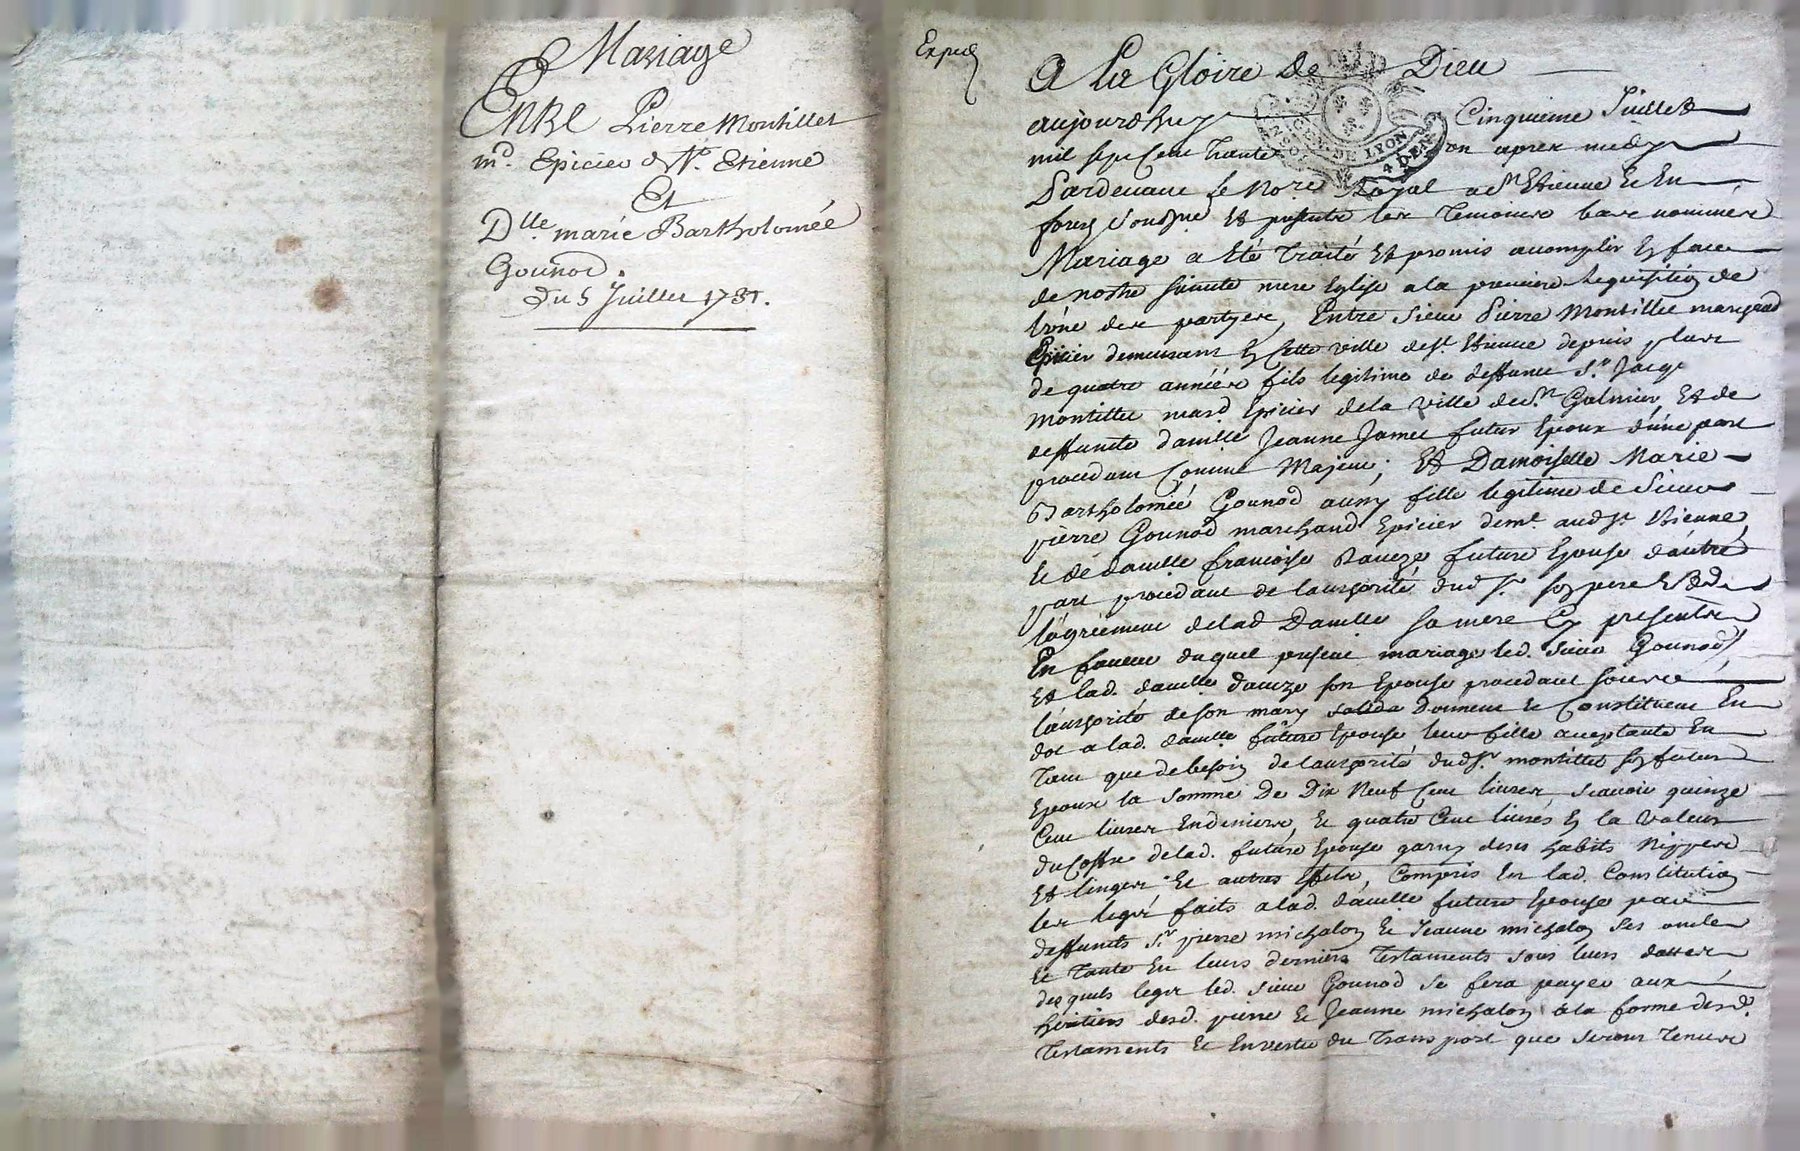 Mariage
Entre Pierre Montillet
md. Epicier de St. Etienne
Et
Dlle. marie Bartholomée
Gounod.
du 5 Juillet 1731.
Exped
A La Gloire De Dieu
aujourdhuy Cinquieme Juillet
mil sept Cent Trente on apres midy
Pardevant le Nore. Royal a St Etienne Et En
forez soussigné Et presents les Temoins bas nommés
Mariage a Eté Traité Et promis accomplir En face
de nostre sainte mere Eglise a la premiere Requisition de
lune des partyes, Entre Sieur Pierre Montillet marchand
Epicier demeurant En Cette ville de St. Etienne depuis plus
de quatre années fils legitime de deffunct Sr. Jacqe
montillet mard Epicier de la ville de St. Galmier, Et de
deffuncte damlle Jeanne Jamet futur Epoux d'une part
procedant Comme Majeur; Et Damoiselle Marie
Bartholomée Gounod aussy fille legitime de Sieur
pierre Gounod marchand Epicier demt. aud St Etienne
Et de damlle francoise Daueze future Epouse d'autre
part procedant de lauthorité dud Sr. son pere Et de
l'agréement de lad Damlle sa mere Cy presents
En faveur duquel present mariage led. Sieur Gounod
Et lad. damlle daueze son Epouse procedant sous
l'authorité de son mary solid. donnent Et Constituent En
dot a lad. damlle future Epouse leur fille acceptante En
Tant que de besoin de lauthorité dud Sr. montillet son futur
Epoux la Somme De Dix Neuf Cent livres scavoir quinze
Cent livres En deniers, Et quatre Cent livres En la Valeur
du Coffre de lad. future Epouse garny de ses habits Nippes
Et linges Et autres Effets, Compris En lad. Constitution
les legs faits a lad. damlle future Epouse par
deffunts Sr. pierre michalon Et Jeanne michalon ses oncle
Et Tante En leurs derniers Testaments sous leurs dattes
desquels legs led. Sieur Gounod se fera payer aux
héritiers desd. pierre Et Jeanne michalon a la forme desd.
Testaments Et En vertu du Transport que seront Tenus